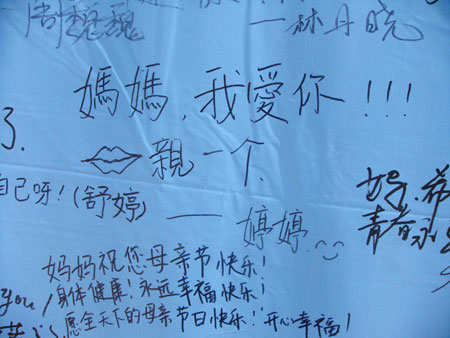 周魏巍
—林丹晓
媽媽,我愛你!!!
了.
親一个.
自己呀!(舒婷)
——婷婷
青春永
妈妈祝您母亲节快乐!
you/身体健康!永远幸福快乐!
愿全天下的母亲节日快乐!开心幸福!